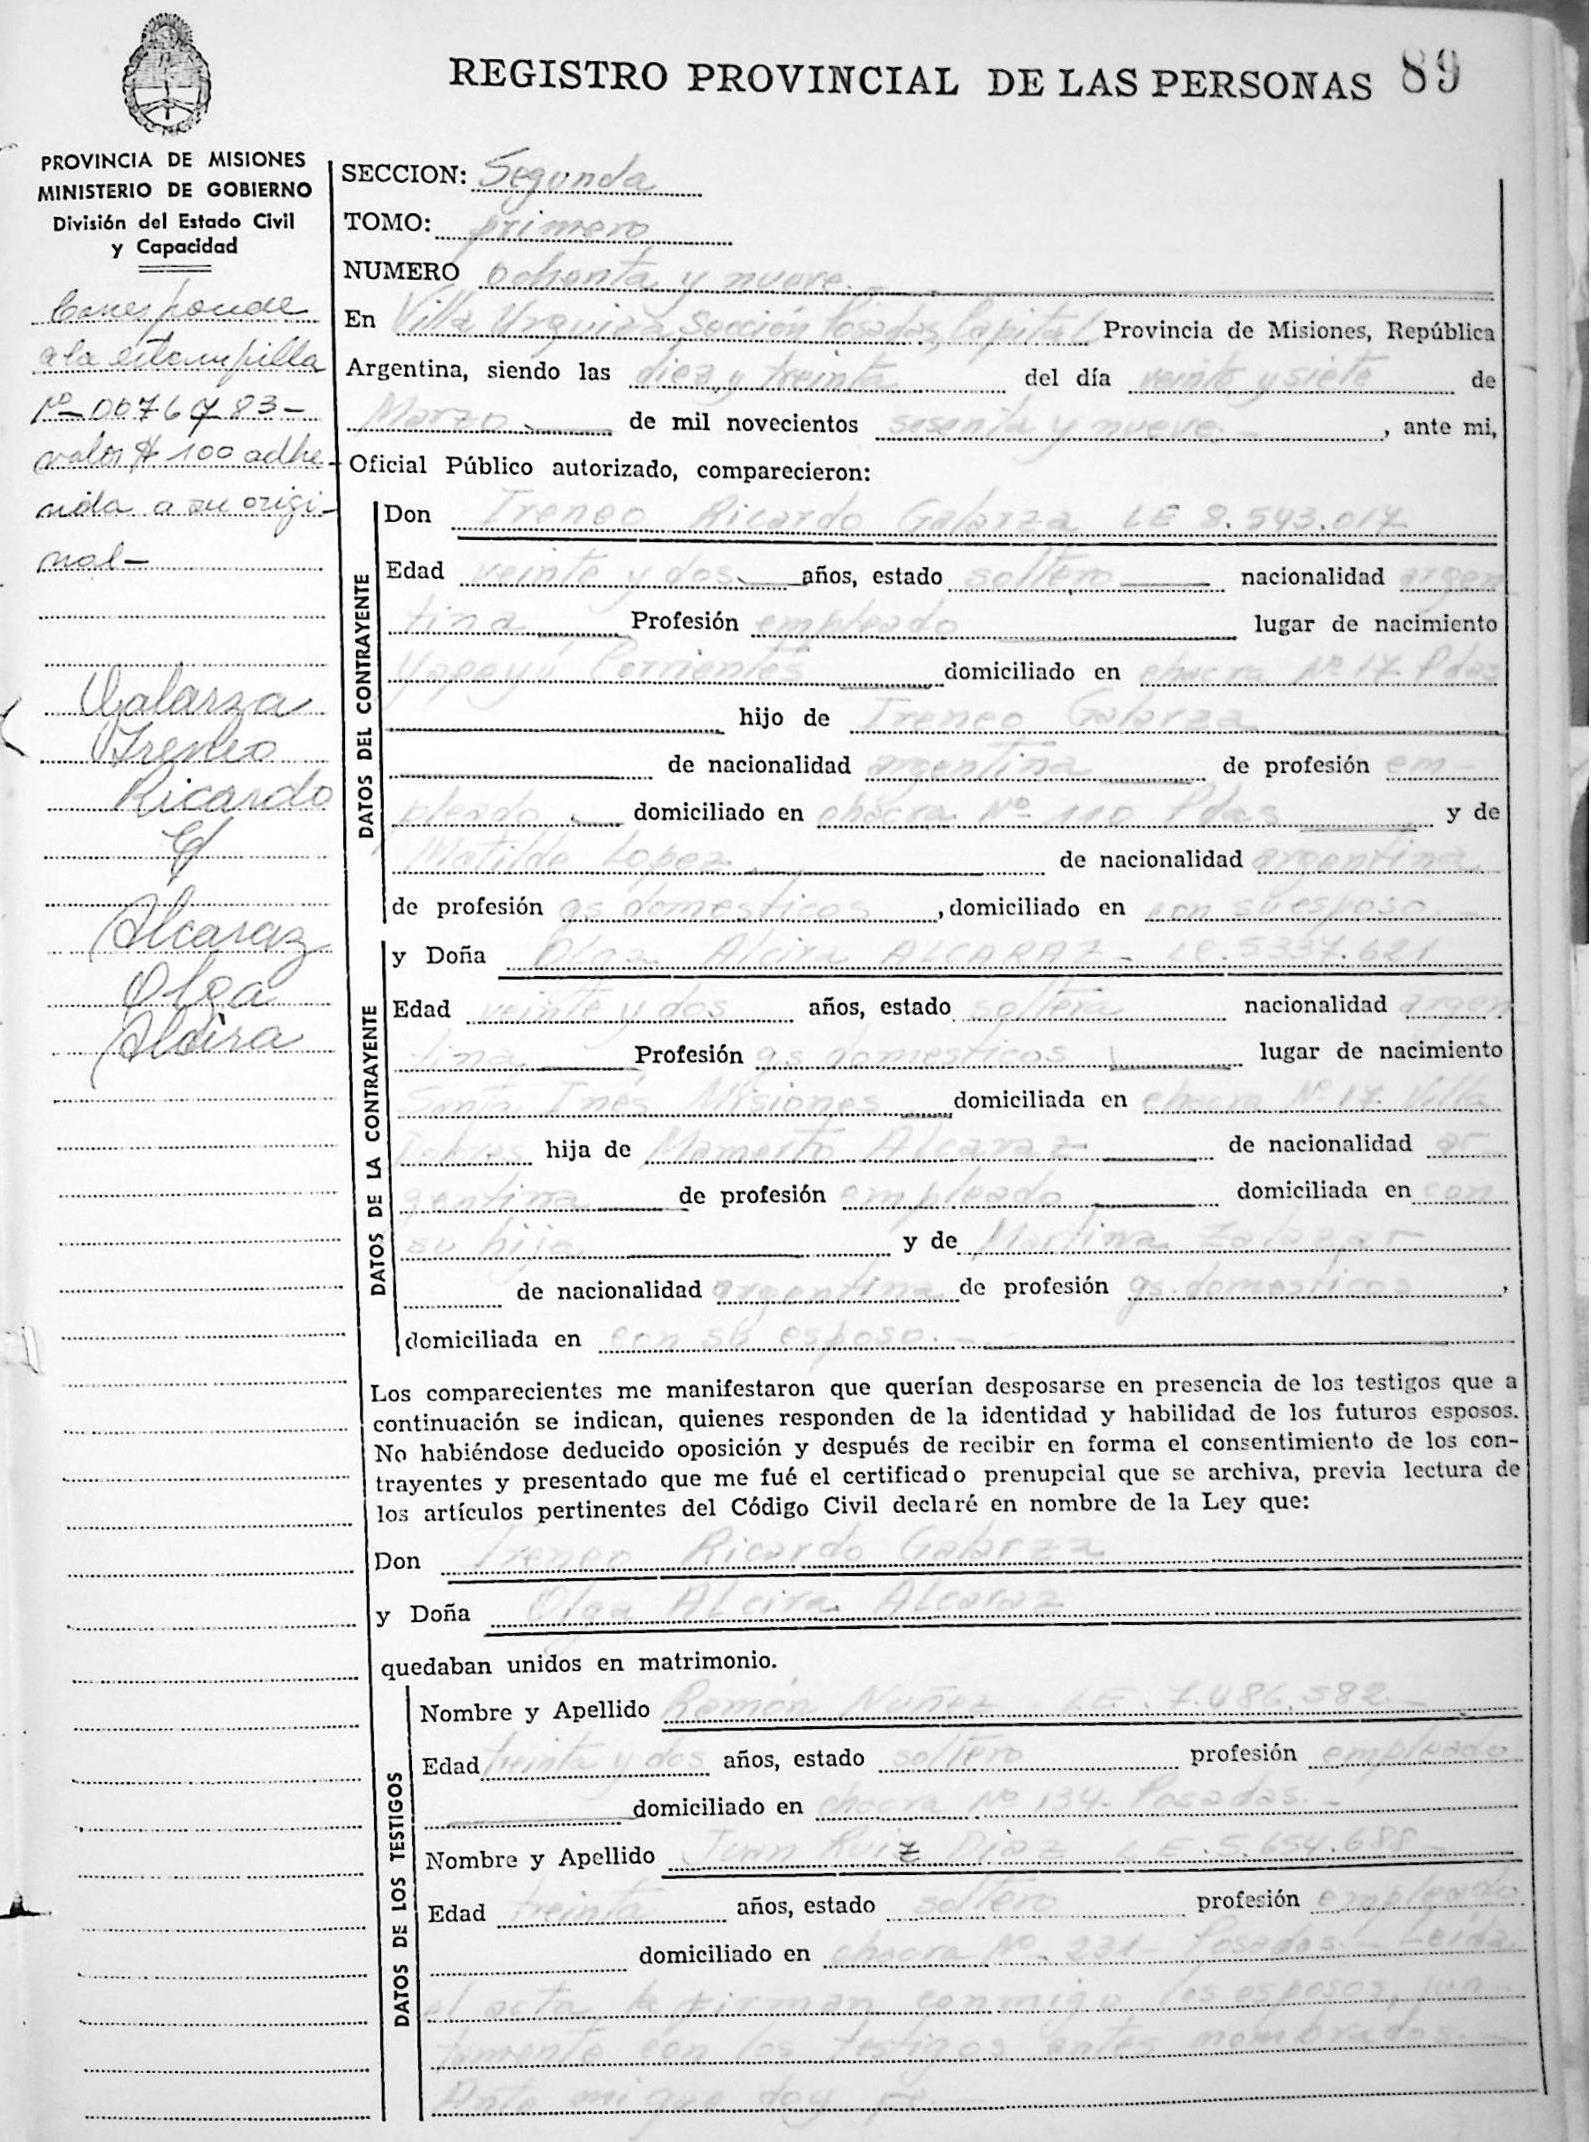 REGISTRO PROVINCIAL DE LAS PERSONAS 89
PROVINCIA DE MISIONES
MINISTERIO DE GOBIERNO
División del Estado Civil
y Capacidad
Corresponde
a la estampilla
Nº 0076783-
valor $ 100 adhe-
rida a su origi-
nal-
Galarza
Ireneo
Ricardo
c/
Alcaraz
Olga
Alcira
SECCION: Segunda
TOMO: primero
NUMERO ochenta y nueve.-
En Villa Urquiza, Sección Posadas, Capital Provincia de Misiones, República
Argentina, siendo las diez y treinta del día veinte y siete de
Marzo de mil novecientos sesenta y nueve.-, ante mi,
Oficial Público autorizado, comparecieron:
DATOS DEL CONTRAYENTE
Don Ireneo Ricardo Galarza LE 8.543.017
Edad veinte y dos años, estado soltero nacionalidad argen
tina Profesión empleado lugar de nacimiento
Yapeyú Corrientes domiciliado en chacra Nº 17 Pdas
hijo de Ireneo Galarza
de nacionalidad argentina de profesión em-
pleado domiciliado en chacra Nº 110 Pdas y de
Matilde Lopez de nacionalidad argentina
de profesión qs domesticos, domiciliado en con su esposo.-
DATOS DE LA CONTRAYENTE
y Doña Olga Alcira ALCARAZ - LC. 5337.621
Edad veinte y dos años, estado soltera nacionalidad argen
tina Profesión qs domesticos lugar de nacimiento
Santa Inés Misiones domiciliada en chacra Nº 17 Villa
Dolores hija de Mamerto Alcaraz de nacionalidad ar
gentina de profesión empleado domiciliada en con
su hija y de Martina Zalazar
de nacionalidad argentina de profesión qs. domesticos,
domiciliada en con su esposo.-
Los comparecientes me manifestaron que querían desposarse en presencia de los testigos que a
continuación se indican, quienes responden de la identidad y habilidad de los futuros esposos.
No habiéndose deducido oposición y después de recibir en forma el consentimiento de los con-
trayentes y presentado que me fué el certificado prenupcial que se archiva, previa lectura de
los artículos pertinentes del Código Civil declaré en nombre de la Ley que:
Don Ireneo Ricardo Galarza
y Doña Olga Alcira Alcaraz
quedaban unidos en matrimonio.
DATOS DE LOS TESTIGOS
Nombre y Apellido Ramón Nuñez LE. 7.486.582.-
Edad treinta y dos años, estado soltero profesión empleado
domiciliado en chacra Nº 134- Posadas.-
Nombre y Apellido Juan Ruiz Diaz L E. 5.654.688-
Edad treinta años, estado soltero profesión empleado
domiciliado en chacra Nº 231- Posadas.- Leida
el acta la firman conmigo los esposos, jun-
tamente con los testigos antes nombrados.-
Ante mi que doy fe.